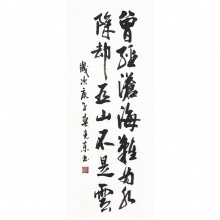 曾經滄海難為水
除却巫山不是雲
歲次庚子
書